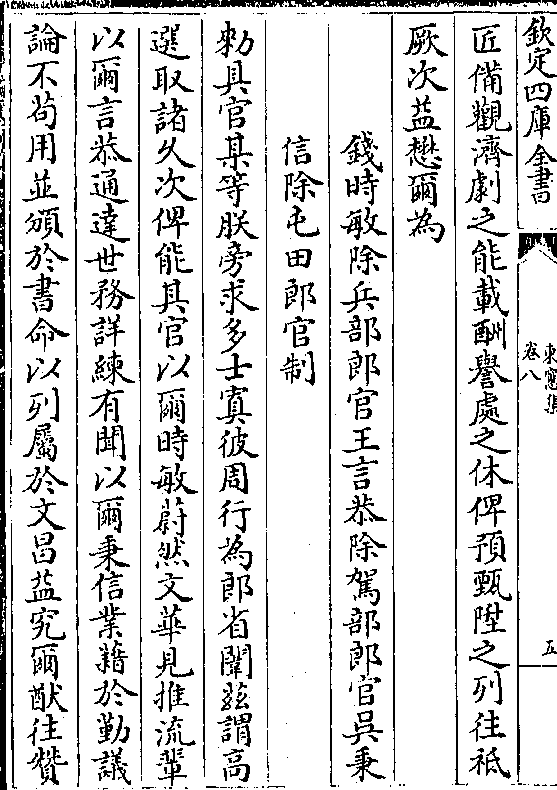 欽定四庫全書
東窓集
卷八
五
匠備觀濟劇之能載酬譽處之休俾預甄陞之列往祗
厥次益懋爾為
錢時敏除兵部郎官王言恭除駕部郎官吳秉
信除屯田郎官制
勑具官某等朕旁求多士寘彼周行為郎省闈兹謂高
選取諸久次俾能具官以爾時敏蔚然文華見推流輩
以爾言恭通達世務詳練有聞以爾秉信業籍於勤議
論不茍用並頒於書命以列屬於文昌益究爾猷往贊